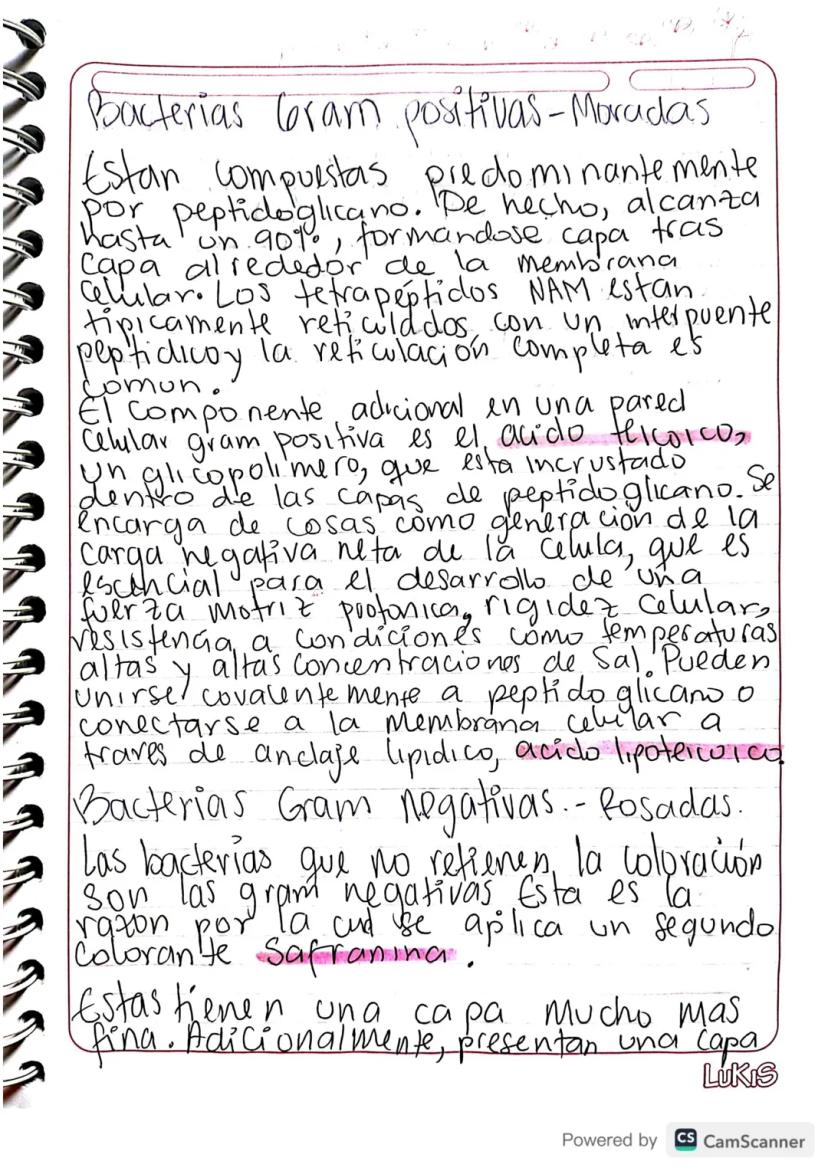 Bacterias Gram positivas - Moradas
Estan compuestas predominantemente
por peptidoglicano. De hecho, alcanza
hasta un 90%, formandose capa tras
capa alrededor de la membrana
celular. Los tetrapéptidos NAM estan
tipicamente reticulados con un interpuente
peptidico y la reticulación completa es
comun.
El componente adicional en una pared
celular gram positiva es el acido teicoico,
un glicopolimero, que esta incrustado
dentro de las capas de peptidoglicano. Se
encarga de cosas como generación de la
carga negativa neta de la celula, que es
escencial para el desarrollo de una
fuerza motriz protonica, rigidez celular,
resistencia a condiciones como temperaturas
altas y altas concentraciones de sal. Pueden
unirse covalentemente a peptidoglicano o
conectarse a la membrana celular a
traves de anclaje lipidico, acido lipoteicoico.
Bacterias Gram negativas.- Rosadas.
Las bacterias que no retienen la coloración
son las gram negativas Esta es la
razon por la cual se aplica un segundo
colorante Safranina.
Estas tienen una capa mucho mas
fina. Adicionalmente, presentan una capa
LUKIS
Powered by CS CamScanner